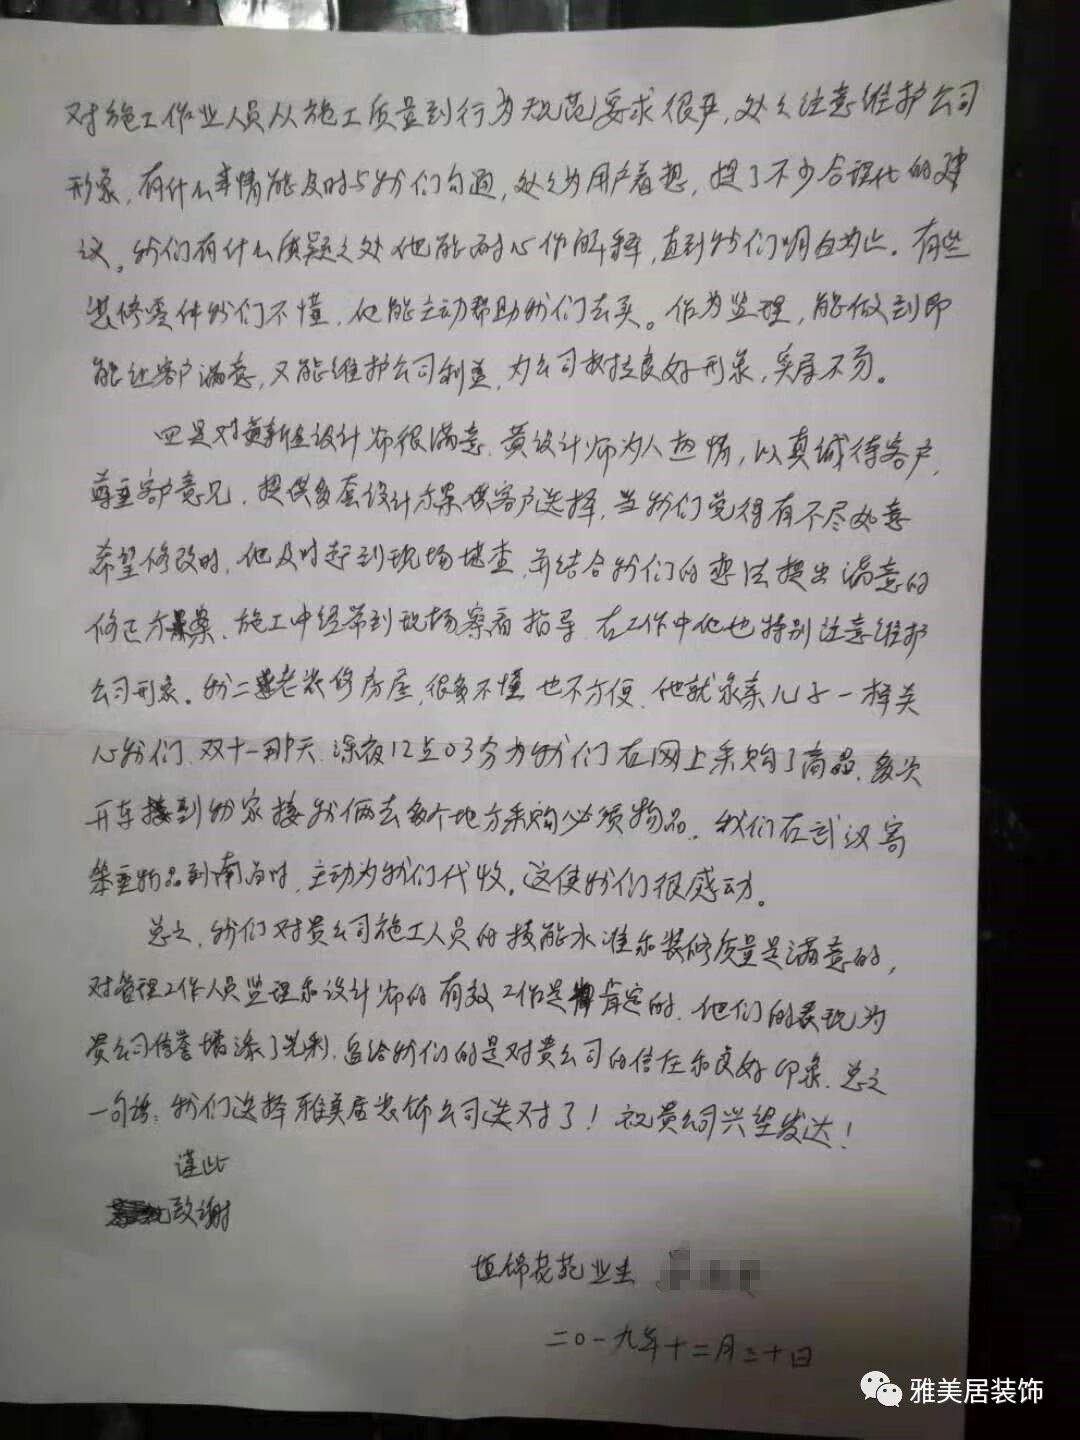 对施工作业人员从施工质量到行为规范要求很严，处处注意维护公司
形象，有什么事情能及时与我们勾通，处处为用户着想，提了不少合理化的建
议。我们有什么质疑之处他能耐心作解释，直到我们明白为止。有些
装修零件我们不懂，他能主动帮助我们去买。作为监理，能做到即
能让客户满意，又能维护公司利益，为公司树立良好形象，实属不易。
四是对黄新设计师很满意，黄设计师为人热情，以真诚待客户，
尊重客户意见，提供多套设计方案供客户选择，当我们觉得有不尽如意
希望修改时，他及时赶到现场堪查，并结合我们的想法提出满意的
修正方案，施工中经常到现场察看指导，在工作中他也特别注意维护
公司形象。我二老装修房屋，很多不懂也不方便，他就象亲儿子一样关
心我们，双十一那天，深夜12点03分为我们在网上采购了商品，多次
开车到我家接我俩去多个地方采购必须物品，我们在武汉寄
笨重物品到南昌时，主动为我们代收，这使我们很感动。
总之，我们对贵公司施工人员的技能水准和装修质量是满意的，
对管理工作人员监理和设计师的有效工作是肯定的，他们的表现为
贵公司信誉增添了光彩，留给我们的是对贵公司的信任和良好印象，总之
一句话：我们选择雅美居装饰公司选对了！祝贵公司兴望发达！
谨此
致谢
恒锦花苑业主
二〇一九年十二月三十日
雅美居装饰